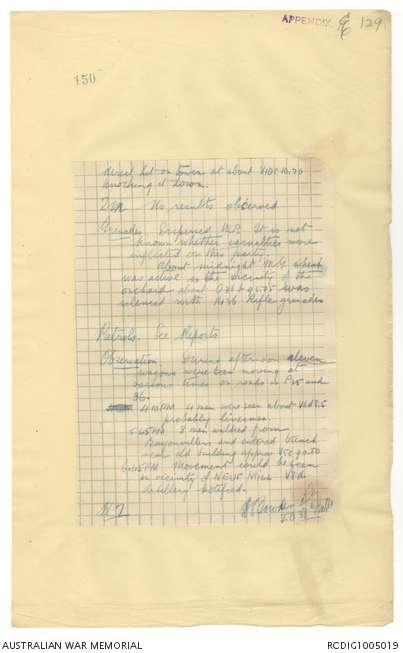 APPENDIX 129
150
direct hit on tower at about
knocking it down.
No results observed
Grenades. Dispersed W.P. It is not
known whether casualties were
inflicted on this party.
About midnight M.G. which
was active in the vicinity of the
orchard about was
silenced with No 36 Rifle grenades
Patrols. See Reports
Observation. During afternoon eleven
wagons were seen moving at
various times on roads in and
36.
4.40PM 4 men were seen about
probably linesmen.
5.45PM 3 men walked from
Bayonvillers and entered trench
near old building approx
6.45PM Movement could be seen
in vicinity of NEUF MILL
Artillery notified.
AUSTRALIAN WAR MEMORIAL
RCDIG1005019